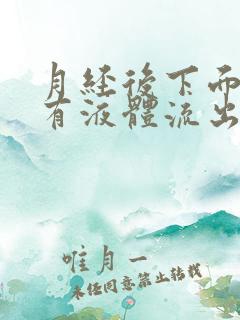 月經後下面
有液體流出
唯月一
未经同意禁止转载